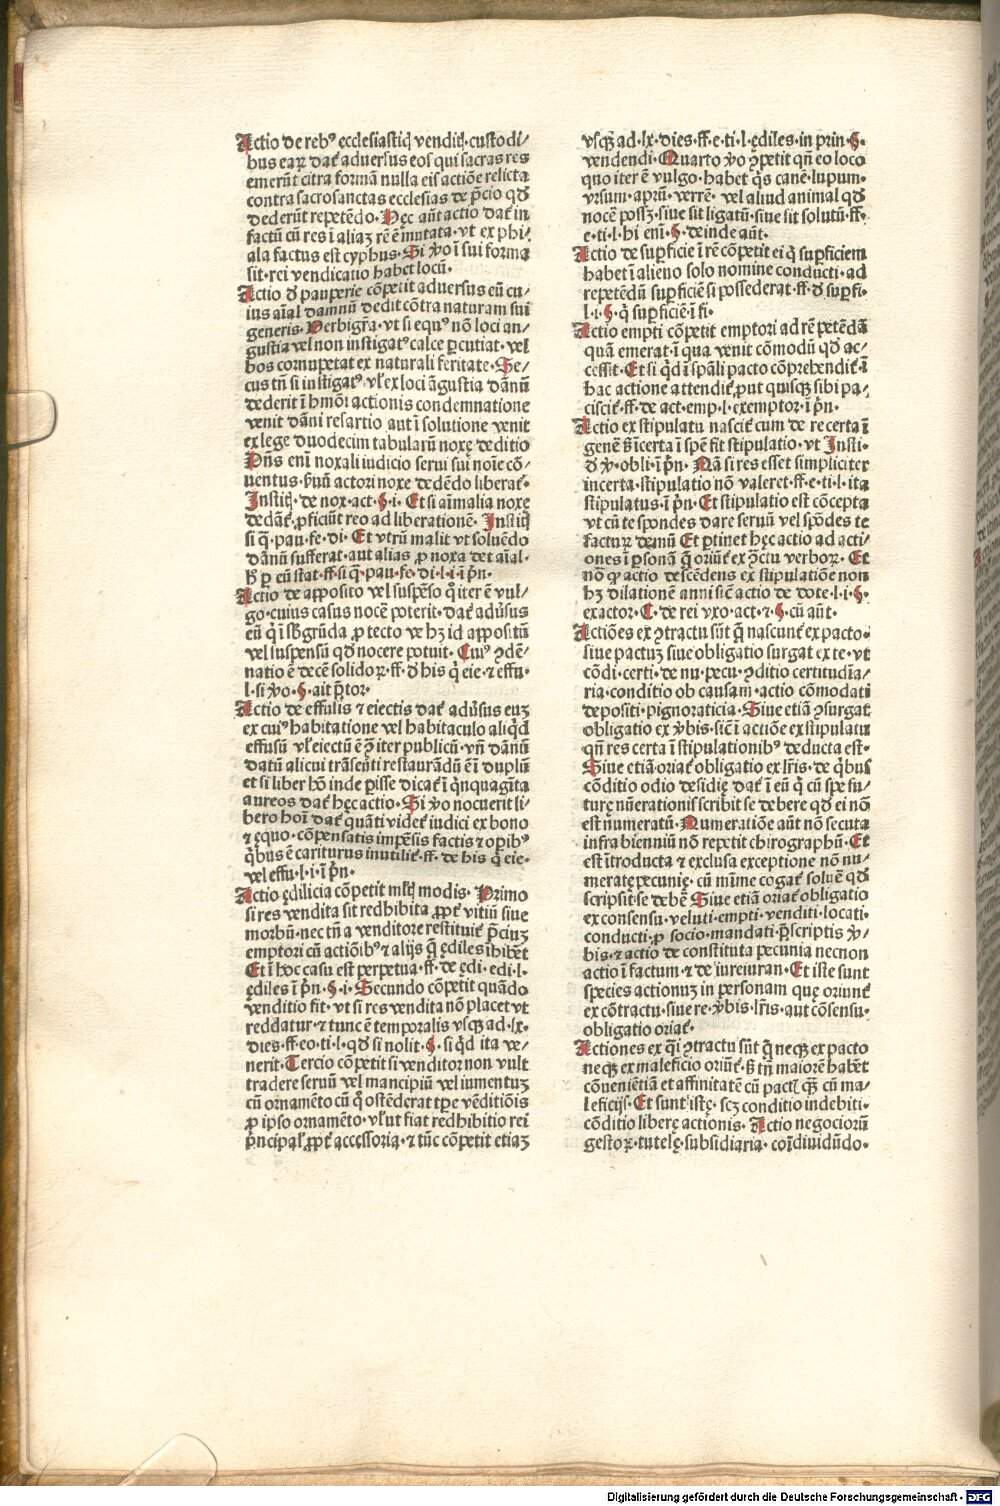 Actio de rebꝰ ecclesiastiꝗ vendiꝗ·custodi/
bus earꝝ dat᷑ aduersus eos qui sacras res
emerūt citra formā nulla eis actiōe relicta
contra sacrosanctas ecclesias de p̄cio qđ
dederūt repetēdo· Hęc aūt actio dat᷑ in
factū cū res ī aliaꝫ rē ē mutata·vt ex phi/
ala factus est cyphus· Si v̊o ī sui forma
sit·rei vendicatio habet locū·
Actio đ pauperie cōpetit aduersus eū cu/
ius aīal damnū dedit cōtra naturam sui
generis· Verbigr̄a·vt si equꝰ nō loci an/
gustia vel non instigatꝰ calce ꝑcutiat·vel
bos cornupetat ex naturali feritate· Se/
cus tn̄ si instigatꝰ vl̓ ex loci āgustia dānū
dederit ī hmōi actionis condemnatione
venit dāni resartio aut ī solutione venit
ex lege duodecim tabularū noxę deditio
Dn̄s enī noxali iudicio serui sui noīe cō/
uentus·seruū actori noxe dedēdo liberat᷑·
Instiꝗ·de nox·act·§·i· Et si aīmalia noxe
dedāt᷑·ꝓficiūt reo ad liberationē· Instiꝗ
si q̄·pau·fe·di· Et vtrū malit vt soluēdo
dānū sufferat·aut alias ꝓ noxa det aīal·
h̓ ꝑ cū stat·ff·si q̄·pau·fe·di·l·i·ī pn̄·
Actio de apposito vel suspēso q̇ iter ē vul/
go·cuius casus nocē poterit·dat᷑ adu̓sus
eū q̇ ī sb̓grūda ꝓ tecto ve hꝫ id appositū
vel suspensū qđ nocere potuit· Cuiꝰ ꝯdē/
natio ē decē solidoꝝ·ff·đ his q̇ eie·⁊ effu·
l·si v̊o·§·ait p̄tor·
Actio de effusis ⁊ eiectis dat᷑ adu̓sus euꝫ
ex cuiꝰ habitatione vel habitaculo aliq̇d
effusū vl̓ eiectū ē q̄ iter publicū·vn̄ dānū
datū alicui trāseūti restaurādū ē ī duplū
et si liber hō inde ꝑisse dicat᷑ ī q̇nquagīta
aureos dat᷑ hęc actio· Si v̊o nocuerit li/
bero hoī dat᷑ quāti videt᷑ iudici ex bono
⁊ ęquo·cōpensatis impēsis factis ⁊ opibꝰ
q̇bus ē cariturus inutilit᷑·ff·de his q̇ eie·
vel effu·l·i·ī pn̄·
Actio ędilicia cōpetit ml̓ꝗ modis· Primo
si res vendita sit redhibita ꝓpt᷑ vitiū siue
morbū·nec tn̄ a venditore restituit᷑ p̄ciuꝫ
emptori cū actiōibꝰ ⁊ alijs q̄ ędiles ībibēt
Et ī hoc casu est perpetua·ff·de ędi·edi·l·
ędiles ī pn̄·§·i· Secundo cōpetit quādo
venditio fit·vt si res vendita nō placet vt
reddatur·⁊ tunc ē temporalis vsqꝫ ad·lx·
dies·ff·eo·ti·l·qđ si nolit·§·si q̇d ita ve/
nerit· Tercio cōpetit si venditor non vult
tradere seruū vel mancipiū vel iumentuꝫ
cū ornamēto cū q̇ ostēderat tꝑe vēditiōis
ꝓ ipso ornamēto·vl̓ vt fiat redhibitio rei
p̄ncipal̓ ꝓpt᷑ accessoria·⁊ tūc cōpetit etiaꝫ
vsqꝫ ad·lx·dies·ff·e·ti·l·ędiles·in prin·§·
vendendi· Quarto v̊o ꝯpetit qn̄ eo loco
quo iter ē vulgo·habet q̇s canē·lupum·
vrsum·aprū·verrē·vel aliud animal qđ
nocē possꝫ·siue sit ligatū·siue sit solutū·ff·
e·ti·l·hi enī·§·deinde aūt·
Actio de suꝑficie ī rē cōpetit ei q̇ suꝑficiem
habet ī alieno solo nomine conducti·ad
repetēdū suꝑficiē si possederat·ff·đ suꝑfi·
l·i·§·q̇ suꝑficiē·ī fi·
Actio empti cōpetit emptori ad rē petēdā
quā emerat·ī qua venit cōmodū qđ ac/
cessit· Et si q̇d ī spāli pacto cōprehendit᷑ ī
hac actione attendit᷑·ꝓut quisqꝫ sibi pa/
ciscit᷑·ff·de act·emp·l·exemptor·ī pn̄·
Actio ex stipulatu nascit᷑ cum de re certa ī
genē s̄ īcerta ī spē fit stipulatio·vt Insti·
đ v̊·obli·ī pn̄· Nā si res esset simpliciter
incerta·stipulatio nō valeret·ff·e·ti·l·ita
stipulatus·ī pn̄· Et stipulatio est cōcepta
vt cū te spondes dare seruū vel spōdes te
facturꝝ domū Et ꝑtinet hęc actio ad acti/
ones ī ꝑsonā q̄ oriūt᷑ ex ꝯctu verboꝝ· Et
nō q̄ actio descēdens ex stipulatiōe non
hꝫ dilationē anni sic̄ actio de dote·l·i·§·
exactor·C·de rei vxo·act·⁊·§·cū aūt·
Actiōes ex ꝯtractu sūt q̄ nascunt᷑ ex pacto·
siue pactuꝫ siue obligatio surgat ex te·vt
cōdi·certi·de nu·pecu·ꝯditio certitudīa/
ria·conditio ob causam·actio cōmodati
depositi·pignoraticia· Siue etiā ꝯsurgat
obligatio ex v̊bis·sic̄ ī actiōe ex stipulatu
qn̄ res certa ī stipulationibꝰ deducta est·
Siue etiā oriat᷑ obligatio ex lr̄is·de q̇bus
cōditio odio desidię dat᷑ ī eū q̇ cū spe fu/
turę nūerationis scribit se debere qđ ei nō
est nūmeratū· Numeratiōe aūt nō secuta
infra bienniū nō repetit chirographū· Et
est ītroducta ⁊ exclusa exceptione nō nu/
meratę pecunię·cū mīme cogat᷑ soluē qđ
scripsit se debē· Siue etiā oriat᷑ obligatio
ex consensu·veluti·empti·venditi·locati·
conducti·ꝓ socio·mandati·p̄scriptis v̊/
bis·⁊ actio de constituta pecunia necnon
actio ī factum·⁊ de iureiuran· Et iste sunt
species actionuꝫ in personam quę oriunt᷑
ex cōtractu·siue re·v̊bis·lr̄is·aut cōsensu·
obligatio oriat᷑·
Actiones ex q̇i ꝯtractu sūt q̄ neqꝫ ex pacto
neqꝫ ex maleficio oriūt᷑·s̄ tn̄ maiorē habēt
cōuenientiā et affinitatē cū pacti qꝫ cū ma/
leficijs· Et sunt istę·scꝫ conditio indebiti·
cōditio liberę actionis· Actio negociorū
gestoꝝ·tutelę·subsidiaria·coī diuidūdo·
Digitalisierung gefördert durch die Deutsche Forschungsgemeinschaft - DFG